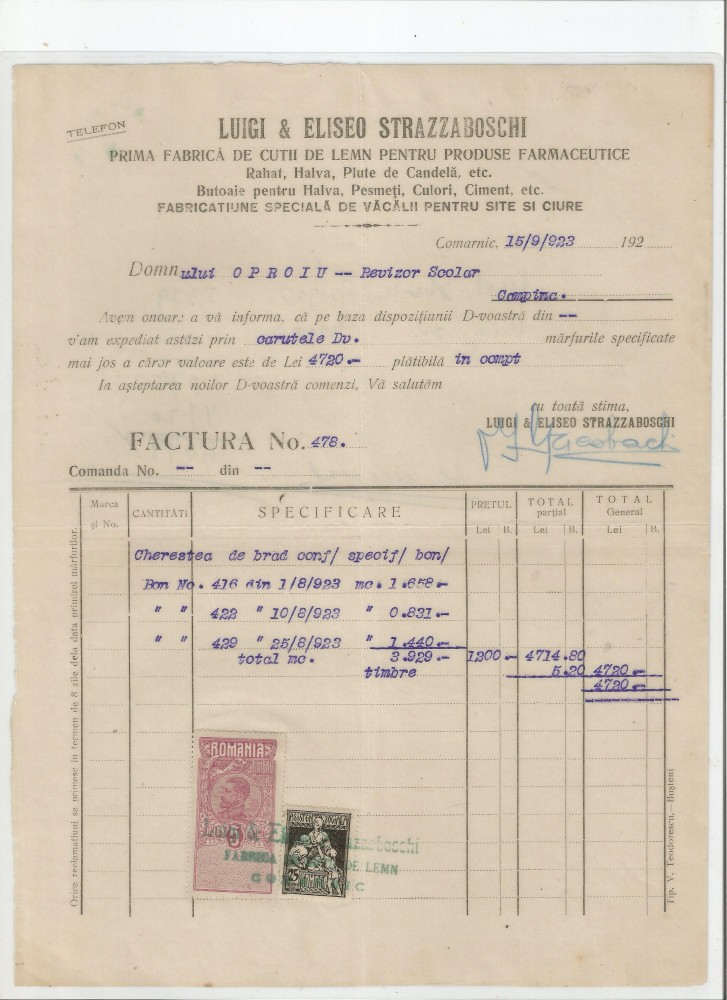 TELEFON
LUIGI & ELISEO STRAZZABOSCHI
PRIMA FABRICĂ DE CUTII DE LEMN PENTRU PRODUSE FARMACEUTICE
Rahat, Halva, Plute de Candelă, etc.
Butoaie pentru Halva, Pesmeți, Culori, Ciment, etc.
FABRICATIUNE SPECIALĂ DE VĂCĂLII PENTRU SITE SI CIURE
Comarnic, 15/9/923 192
Domnului OPROIU -- Revizor Scolar
Compina.
Avem onoare a vă informa, că pe baza dispozițiunii D-voastră din --
v'am expediat astăzi prin carutele Dv. mărfurile specificate
mai jos a căror valoare este de Lei 4720.- plătibilă in compt
In așteptarea noilor D-voastră comenzi, Vă salutăm
cu toată stima,
LUIGI & ELISEO STRAZZABOSCHI
FACTURA No. 478.
Comanda No. -- din --
Marca și No. CANTITĂȚI SPECIFICARE PREȚUL TOTAL parțial TOTAL General
Lei B. Lei B. Lei B.
Cherestea de brad conf/ specif/ bon/
Bon No. 416 din 1/8/923 mc. 1.658.-
" " 422 " 10/8/923 " 0.831.-
" " 429 " 25/8/923 " 1.440.-
total mc. 3.929.- 1200.- 4714.80
timbre 5.20 4720.-
4720.-
Orice reclamațiuni se primesc în termen de 8 zile dela data primirei mărfurilor.
ROMANIA
5
25
Luigi & Eliseo Strazzaboschi
FABRICA DE LEMN
COMARNIC
Tip. V. Teodorescu. - Bușteni